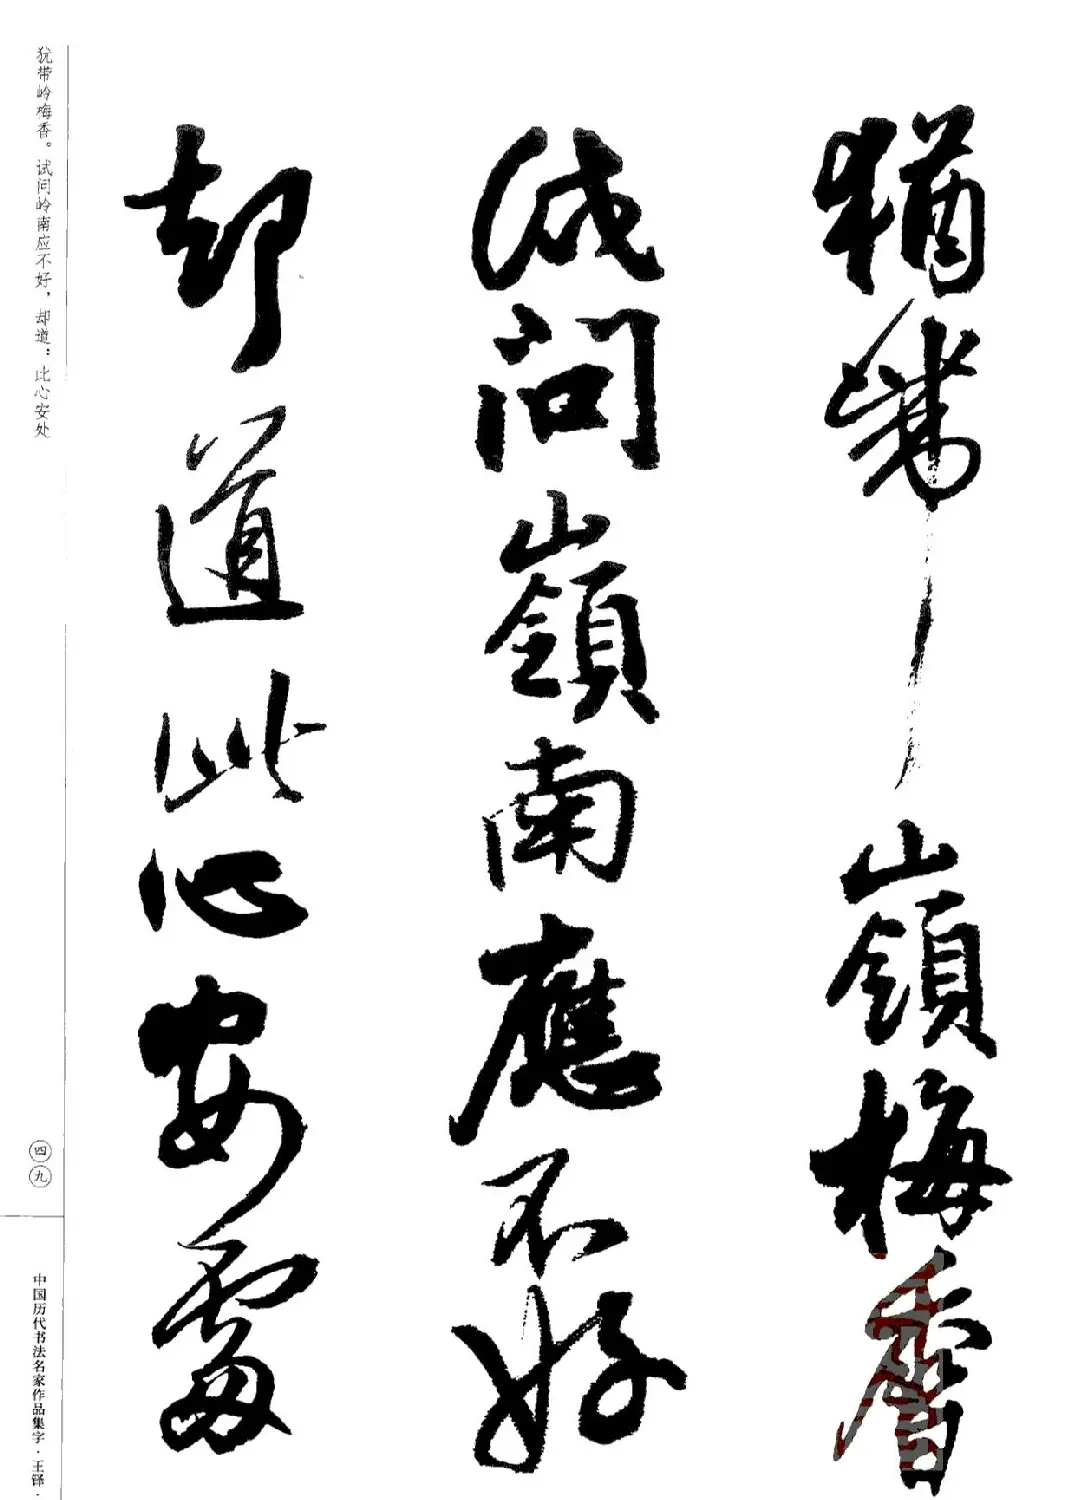 猶帶嶺梅香
試問嶺南應不好
却道此心安處
犹带岭梅香。试问岭南应不好，却道：此心安处
四九
中国历代书法名家作品集字·王铎·